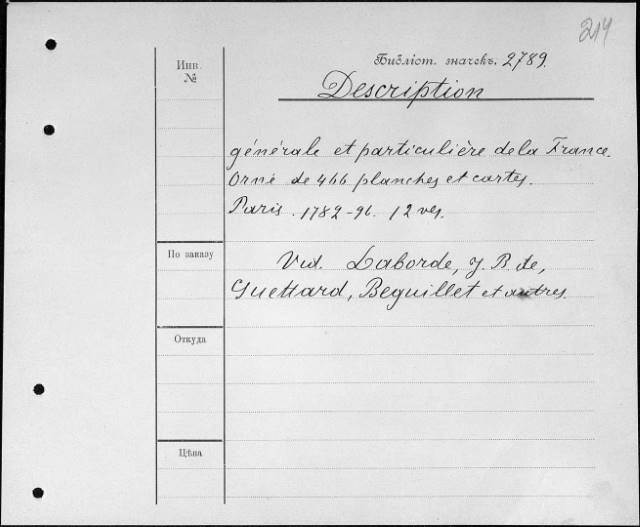 214
Инв. №
Библіот. значекъ. 2789.
Description
générale et particulière de la France.
Orné de 466 planches et cartes.
Paris. 1782-96. 12 ves.
По заказу
Vid. Laborde, J. B. de,
Guettard, Beguillet et autres.
Откуда
Цѣна